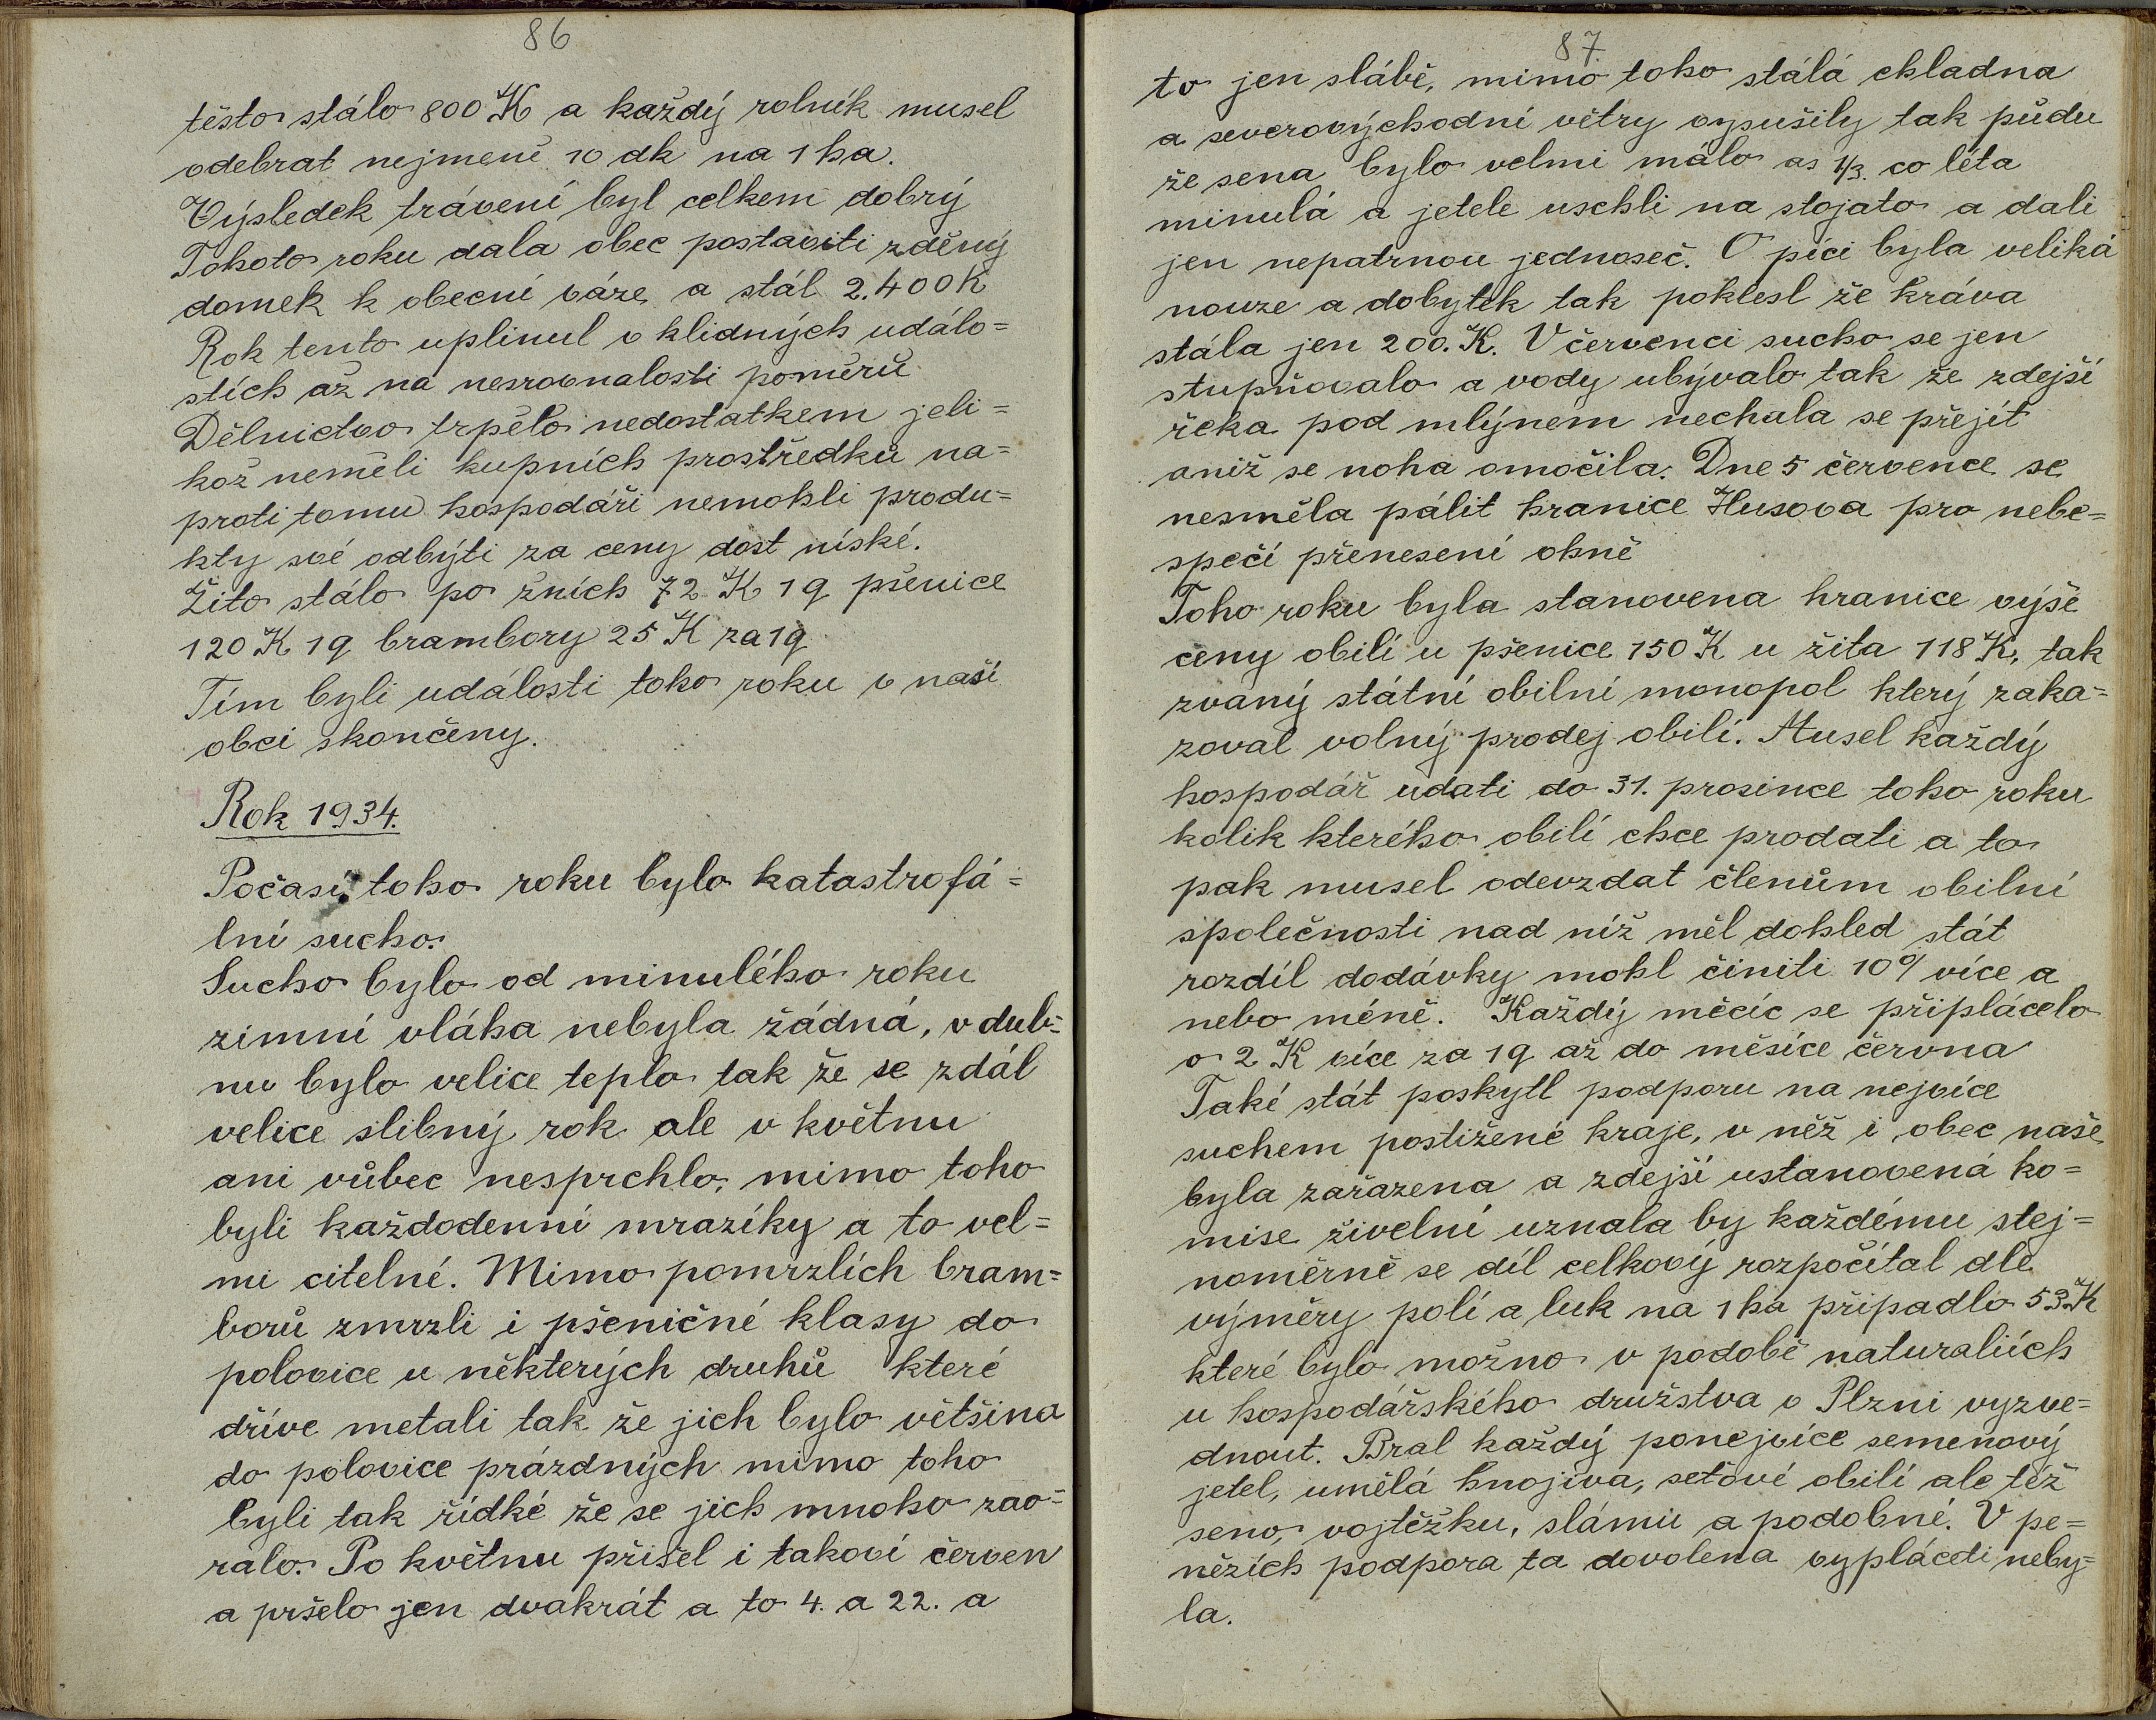 86
těsto stálo 800 K a každý rolník musel
odebrat nejmeně 10 dk na 1 ha.
Výsledek trávení byl celkem dobrý
Tohoto roku dala obec postaviti zděný
domek k obecní váze a stál 2.400 K
Rok tento uplinul v klidných událo=
stích až na nesrovnalosti poměrů
Dělnictvo trpělo nedostatkem jeli=
kož neměli kupních prostředků na=
proti tomu hospodáři nemohli produ=
kty své odbýti za ceny dost níské.
Žito stálo po žních 72 K 1q pšenice
120 K 1q brambory 25 K za 1q
Tím byli události toho roku v naší
obci skončeny.
Rok 1934.
Počasí toho roku bylo katastrofá=
lní sucho.
Sucho bylo od minulého roku
zimní vláha nebyla žádná, v dub=
nu bylo velice teplo tak že se zdál
velice slibný rok ale v květnu
ani vůbec nesprchlo, mimo toho
byli každodenní mrazíky a to vel=
mi citelné. Mimo pomrzlích bram=
borů zmrzli i pšeničné klasy do
polovice u některých druhů které
dříve metali tak že jich bylo většina
do polovice prázdných mimo toho
byli tak řídké že se jich mnoho zao=
ralo. Po květnu přišel i takoví červen
a pršelo jen dvakrát a to 4. a 22. a
87.
to jen slábě, mimo toho stálá chladna
a severovýchodní větry vysušily tak půdu
že sena bylo velmi málo as 1/3. co léta
minulá a jetele uschli na stojato a dali
jen nepatrnou jednoseč. O píci byla veliká
nouze a dobytek tak poklesl že kráva
stála jen 200. K. V červenci sucho se jen
stupňovalo a vody ubývalo tak že zdejší
řeka pod mlýnem nechala se přejít
aniž se noha omočila. Dne 5 července se
nesměla pálit hranice Husova pro nebe=
spečí přenesení ohně
Toho roku byla stanovena hranice výše
ceny obilí u pšenice 150 K u žita 118 K, tak
zvaný státní obilní monopol který zaka=
zoval volný prodej obilí. Musel každý
hospodář udati do 31. prosince toho roku
kolik kterého obilí chce prodati a to
pak musel odevzdat členům obilní
společnosti nad níž měl dohled stát
rozdíl dodávky mohl činiti 10% více a
nebo méně. Každý měcíc se připlácelo
o 2 K více za 1q až do měsíce června
Také stát poskytl podporu na nejvíce
suchem postižené kraje, v něž i obec naše
byla zařazena a zdejší ustanovená ko=
mise živelní uznala by každému stej=
noměrně se díl celkový rozpočítal dle
výměry polí a luk na 1 ha připadlo 53 K
které bylo možno v podobě naturaliích
u hospodářského družstva v Plzni vyzve=
dnout. Bral každý ponejvíce semenový
jetel, umělá hnojiva, seťové obilí ale též
seno, vojtěžku, slámu a podobné. V pe=
nězích podpora ta dovolena vypláceti neby=
la.